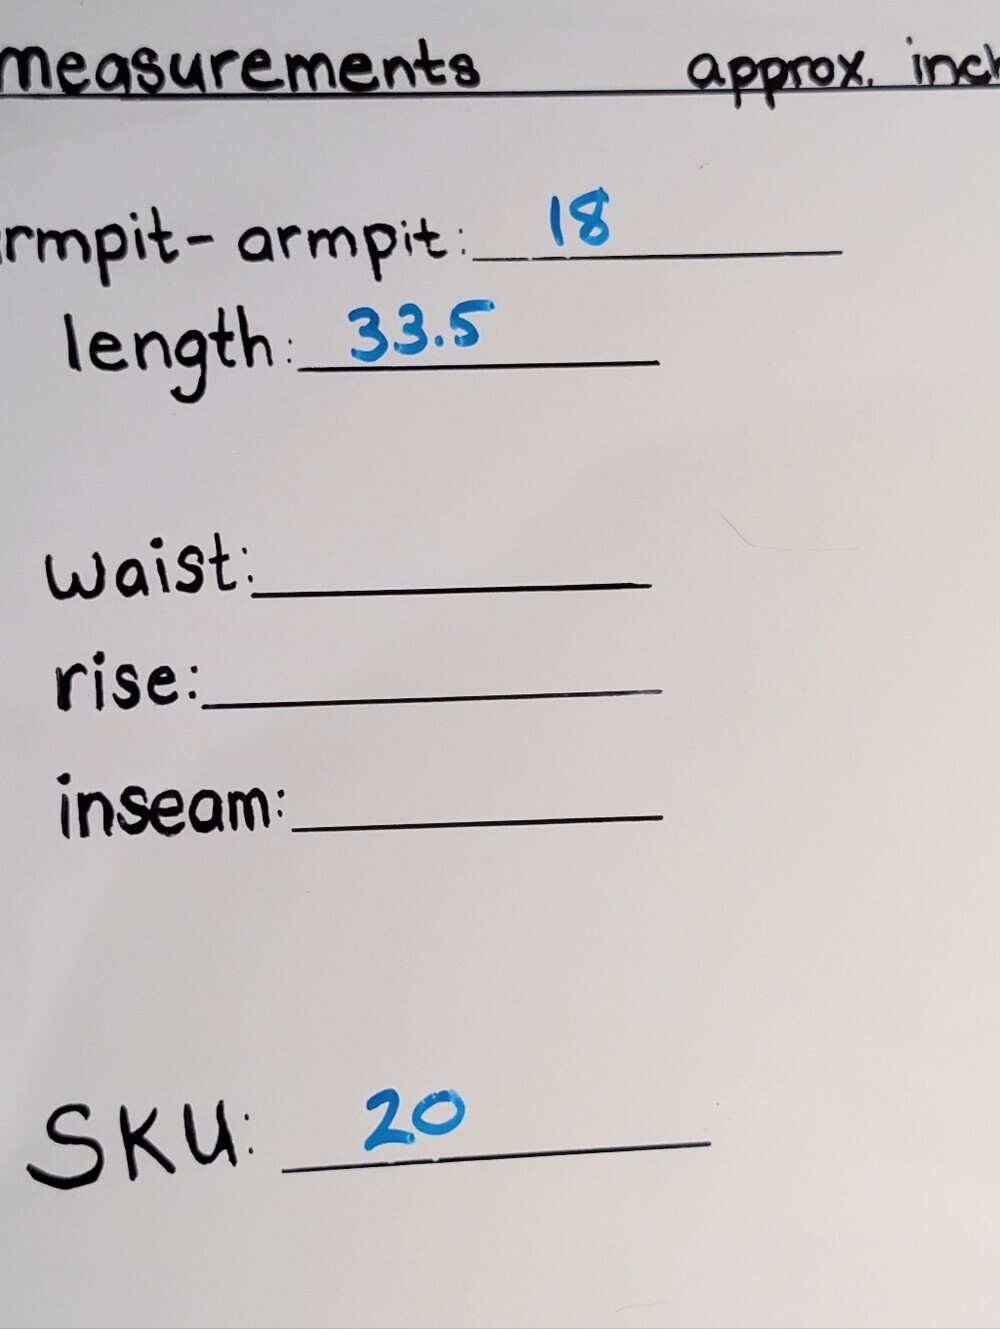 measurements approx. inch
rmpit-armpit: 18
length: 33.5
waist:
rise:
inseam:
SKU: 20